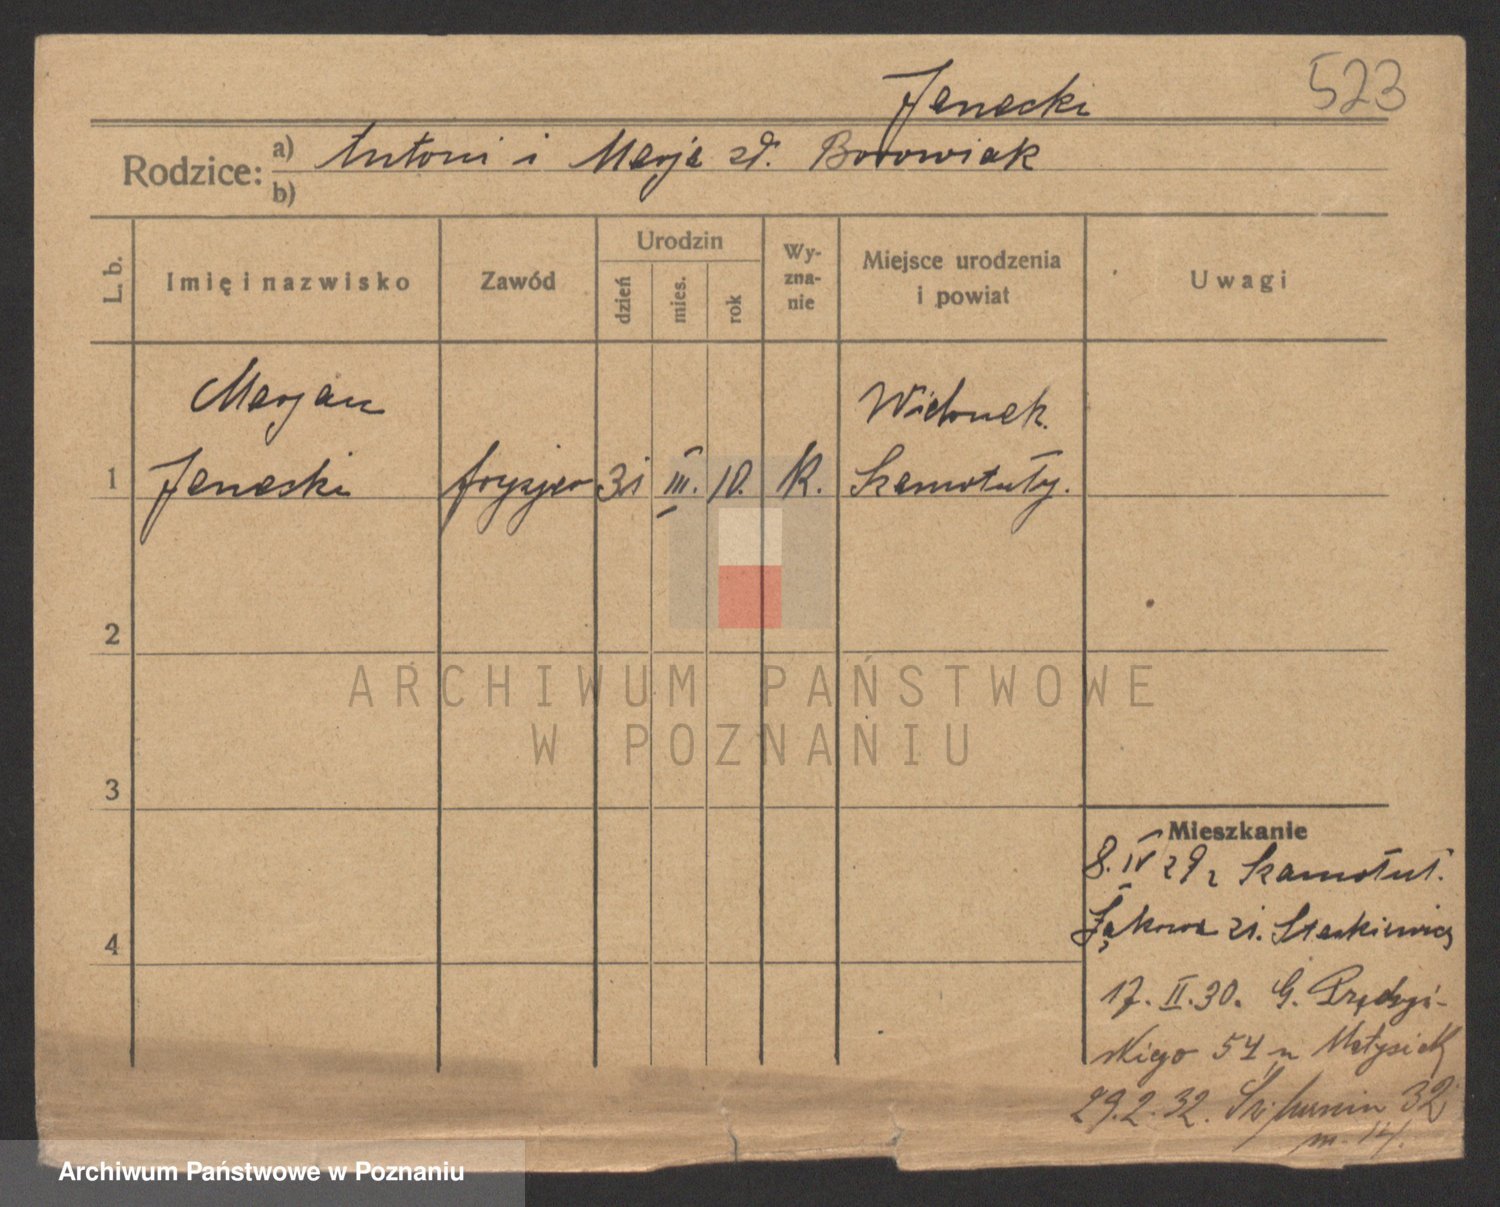 523
Janecki
Rodzice:
a) Antoni i Marja zd. Borowiak
b)
L. b.
Imię i nazwisko
Zawód
Urodzin
dzień
mies.
rok
Wy-
zna-
nie
Miejsce urodzenia
i powiat
Uwagi
Marjan
Wielonek.
1 Janecki fryzjer 31 III. 10. K. Szamotuły.
2
3
4
Mieszkanie
8. IV 29 z Szamotuł.
Łąkowa 21.
17. II. 30. G. Prądzyń-
skiego 54 u Matysiak
29.2.32. 32
m. 14.
ARCHIWUM PAŃSTWOWE
W POZNANIU
Archiwum Państwowe w Poznaniu